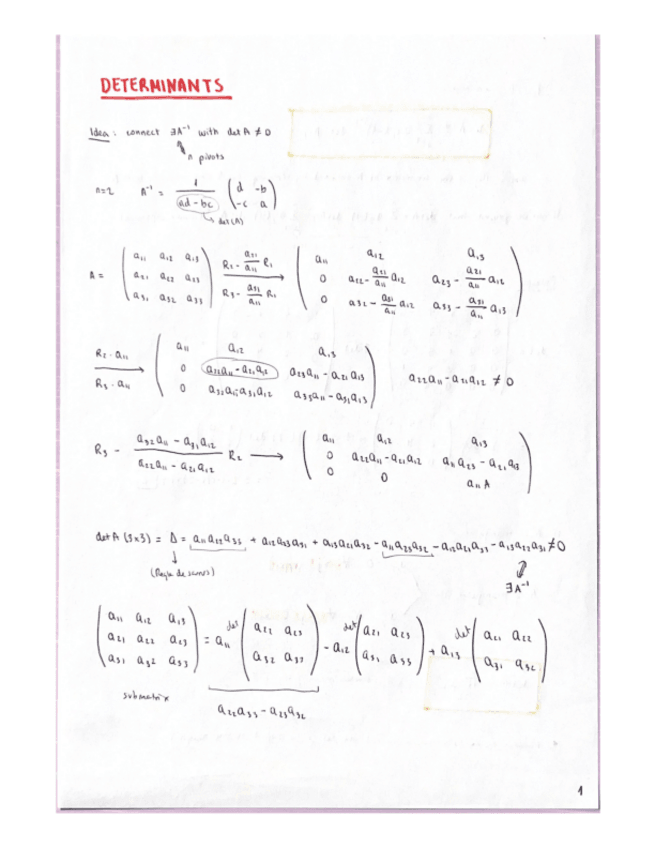 DETERMINANTS
Idea: connect ∃A⁻¹ with det A ≠ 0
n pivots
n=2 A⁻¹ = 1/(ad-bc) (d -b; -c a)
det(A)
A = (a₁₁ a₁₂ a₁₃; a₂₁ a₂₂ a₂₃; a₃₁ a₃₂ a₃₃) R₂ - a₂₁/a₁₁ R₁, R₃ - a₃₁/a₁₁ R₁ → (a₁₁ a₁₂ a₁₃; 0 a₂₂ - a₂₁/a₁₁ a₁₂ a₂₃ - a₂₁/a₁₁ a₁₂; 0 a₃₂ - a₃₁/a₁₁ a₁₂ a₃₃ - a₃₁/a₁₁ a₁₃)
R₂·a₁₁, R₃·a₁₁ → (a₁₁ a₁₂ a₁₃; 0 a₂₂a₁₁ - a₂₁a₁₂ a₂₃a₁₁ - a₂₁a₁₃; 0 a₃₂a₁₁-a₃₁a₁₂ a₃₃a₁₁ - a₃₁a₁₃) a₂₂a₁₁ - a₂₁a₁₂ ≠ 0
R₃ - (a₃₂a₁₁ - a₃₁a₁₂)/(a₂₂a₁₁ - a₂₁a₁₂) R₂ → (a₁₁ a₁₂ a₁₃; 0 a₂₂a₁₁ - a₂₁a₁₂ a₁₁a₂₃ - a₂₁a₁₃; 0 0 a₁₁ Δ)
det A (3x3) = Δ = a₁₁a₂₂a₃₃ + a₁₂a₂₃a₃₁ + a₁₃a₂₁a₃₂ - a₁₁a₂₃a₃₂ - a₁₂a₂₁a₃₃ - a₁₃a₂₂a₃₁ ≠ 0
(Regla de sarrus)
∃A⁻¹
(a₁₁ a₁₂ a₁₃; a₂₁ a₂₂ a₂₃; a₃₁ a₃₂ a₃₃) = a₁₁ det (a₂₂ a₂₃; a₃₂ a₃₃) - a₁₂ det (a₂₁ a₂₃; a₃₁ a₃₃) + a₁₃ det (a₂₁ a₂₂; a₃₁ a₃₂)
submatrix
a₂₂a₃₃ - a₂₃a₃₂
1